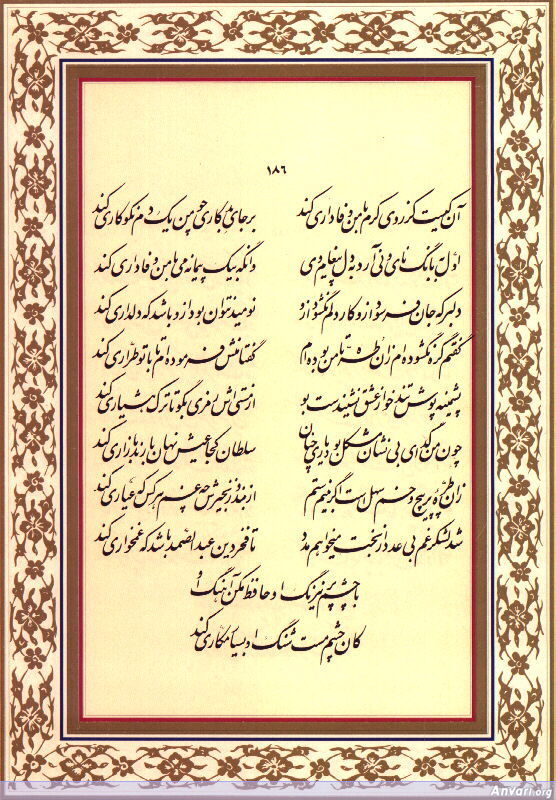 ۱۸۶
آن کیست کز روی کرم با من وفاداری کند بر جای بدکاری چو من یک دم نکوکاری کند
اول ببانگ نای و نی آرد بدل پیغام وی وانگه بیک پیمانه می با من وفاداری کند
دلبر که جان فرسود ازو کار دلم نگشود ازو نومید نتوان بود ازو باشد که دلداری کند
گفتم گره نگشوده‌ام زان طره تا من بوده‌ام گفتا منش فرموده‌ام تا با تو طراری کند
پشمینه پوش تندخو از عشق نشنیدست بو از مستی‌اش رمزی بگو تا ترک هشیاری کند
چون من گدای بی نشان مشکل بود یاری چنان سلطان کجا عیش نهان با رند بازاری کند
زان طره پر پیچ و خم سهل است اگر بینم ستم از بند و زنجیرش چه غم هر کس که عیاری کند
شد لشکر غم بی عدد از بخت میخواهم مدد تا فخر دین عبدالصمد باشد که غمخواری کند
با چشم پر نیرنگ او حافظ مکن آهنگ او
کان چشم مست شنگ او بسیار مکاری کند
AnVari.org